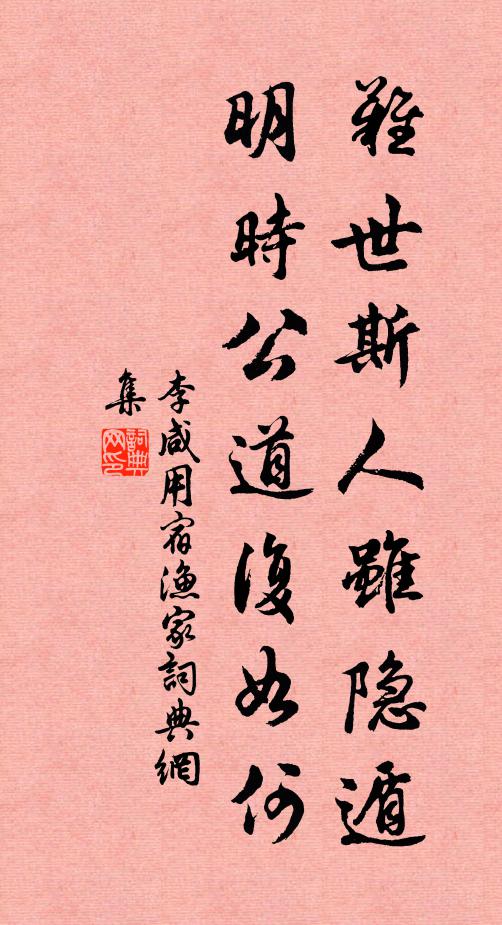 難世斯人雖隐遁
明時公道復如何
李咸用宿漁家詞典網
集
詞典
网印